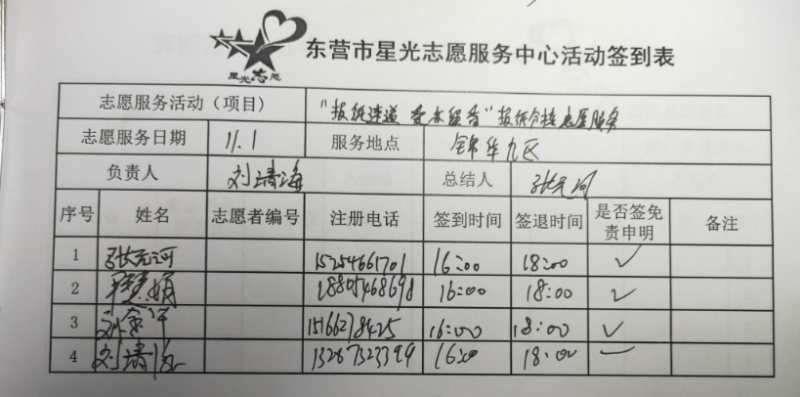 东营市星光志愿服务中心活动签到表
星光志愿
志愿服务活动（项目） "报纸速递
志愿服务日期 11.1 服务地点 锦华九区
负责人 刘清海 总结人 张元河
序号 姓名 志愿者编号 注册电话 签到时间 签退时间 是否签免责申明 备注
1 张元河 15254661701 16:00 18:00 ✓
2 18805468698 16:00 18:00 ✓
3 15166278425 16:00 18:00 ✓
4 刘清海 13287323399 16:00 18:00 ✓